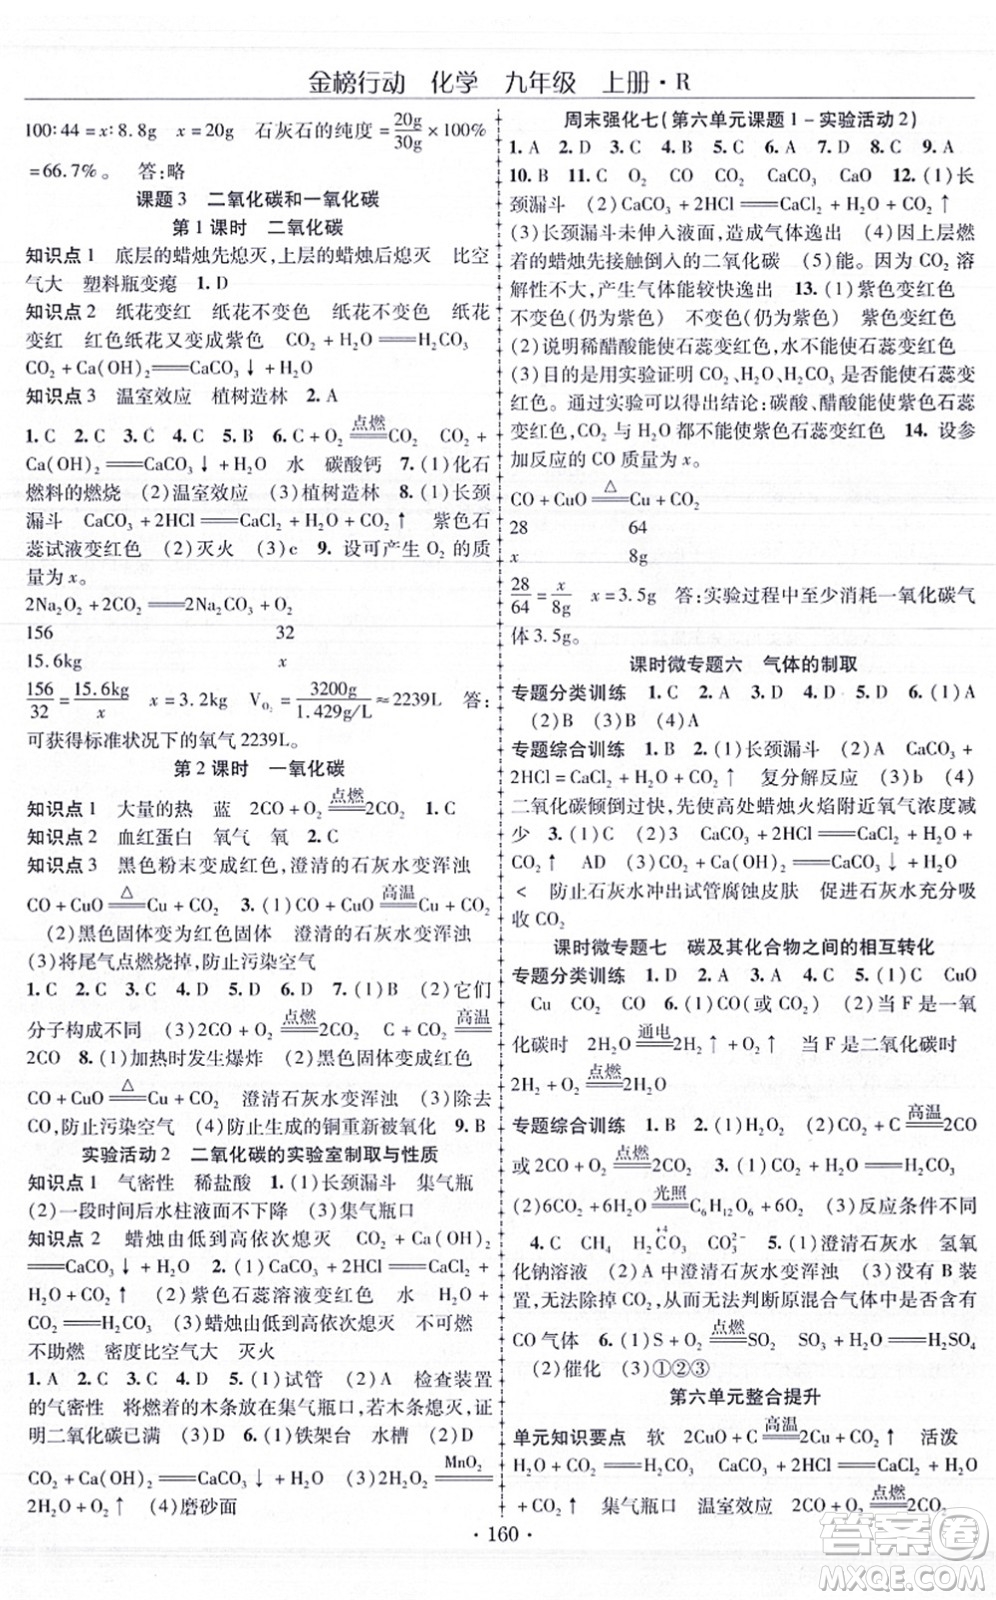 金榜行动 化学 九年级 上册·R
100:44=x:8.8g x=20g 石灰石的纯度=20g/30g×100%
=66.7%。 答:略
课题3 二氧化碳和一氧化碳
第1课时 二氧化碳
知识点1 底层的蜡烛先熄灭,上层的蜡烛后熄灭 比空
气大 塑料瓶变瘪 1.D
知识点2 纸花变红 纸花不变色 纸花不变色 纸花
变红 红色纸花又变成紫色 CO₂+H₂O══H₂CO₃
CO₂+Ca(OH)₂══CaCO₃↓+H₂O
知识点3 温室效应 植树造林 2.A
1.C 2.C 3.C 4.C 5.B 6.C+O₂══点燃CO₂ CO₂+
Ca(OH)₂══CaCO₃↓+H₂O 水 碳酸钙 7.(1)化石
燃料的燃烧 (2)温室效应 (3)植树造林 8.(1)长颈
漏斗 CaCO₃+2HCl══CaCl₂+H₂O+CO₂↑ 紫色石
蕊试液变红色 (2)灭火 (3)c 9.设可产生O₂的质
量为x。
2Na₂O₂+2CO₂══2Na₂CO₃+O₂
156 32
15.6kg x
156/32=15.6kg/x x=3.2kg V_O₂=3200g/1.429g/L≈2239L 答:
可获得标准状况下的氧气2239L。
第2课时 一氧化碳
知识点1 大量的热 蓝 2CO+O₂══点燃2CO₂ 1.C
知识点2 血红蛋白 氧气 氧 2.C
知识点3 黑色粉末变成红色,澄清的石灰水变浑浊
CO+CuO══△Cu+CO₂ 3.(1)CO+CuO══高温Cu+CO₂
(2)黑色固体变为红色固体 澄清的石灰水变浑浊
(3)将尾气点燃烧掉,防止污染空气
1.C 2.B 3.C 4.D 5.D 6.D 7.(1)B (2)它们
分子构成不同 (3)2CO+O₂══点燃2CO₂ CO₂+C══高温
2CO 8.(1)加热时发生爆炸 (2)黑色固体变成红色
CO+CuO══△Cu+CO₂ 澄清石灰水变浑浊 (3)除去
CO,防止污染空气 (4)防止生成的铜重新被氧化 9.B
实验活动2 二氧化碳的实验室制取与性质
知识点1 气密性 稀盐酸 1.(1)长颈漏斗 集气瓶
(2)一段时间后水柱液面不下降 (3)集气瓶口
知识点2 蜡烛由低到高依次熄灭 CO₂+Ca(OH)₂
══CaCO₃↓+H₂O 2.(1)CaCO₃+2HCl══CaCl₂+
H₂O+CO₂↑ (2)紫色石蕊溶液变红色 水 CO₂+
H₂O══H₂CO₃ (3)蜡烛由低到高依次熄灭 不可燃
不助燃 密度比空气大 灭火
1.A 2.C 3.C 4.D 5.(1)试管 (2)A 检查装置
的气密性 将燃着的木条放在集气瓶口,若木条熄灭,证
明二氧化碳已满 (3)D 6.(1)铁架台 水槽 (2)D
CO₂+Ca(OH)₂══CaCO₃↓+H₂O (3)B 2H₂O₂══MnO₂
2H₂O+O₂↑ (4)磨砂面
周末强化七(第六单元课题1-实验活动2)
1.A 2.D 3.C 4.C 5.D 6.B 7.D 8.C 9.A
10.B 11.C O₂ CO CO₂ CaCO₃ CaO 12.(1)长
颈漏斗 (2)CaCO₃+2HCl══CaCl₂+H₂O+CO₂↑
(3)长颈漏斗未伸入液面,造成气体逸出 (4)上层燃
着的蜡烛先接触倒入的二氧化碳 (5)能。因CO₂溶
解性不大,产生气体能较快逸出 13.(1)紫色变红色
不变色(仍为紫色) 不变色(仍为紫色) 紫色变红色
(2)说明稀醋酸能使石蕊变红色,水不能使石蕊变红色
(3)目的是用实验证明CO₂、H₂O、H₂CO₃是否能使石蕊变
红色。通过实验可以得出结论:碳酸、醋酸能使紫色石蕊
变红色,CO₂与H₂O都不能使紫色石蕊变红色 14.设参
加反应的CO质量为x。
CO+CuO══△Cu+CO₂
28 64
x 8g
28/64=x/8g x=3.5g 答:实验过程中至少消耗一氧化碳气
体3.5g。
课时微专题六 气体的制取
专题分类训练 1.C 2.A 3.D 4.D 5.D 6.(1)A
(2)B (3)B (4)A
专题综合训练 1.B 2.(1)长颈漏斗 (2)A CaCO₃+
2HCl=CaCl₂+H₂O+CO₂↑ 复分解反应 (3)b (4)
二氧化碳倾倒过快,先使高处蜡烛火焰附近氧气浓度减
少 3.(1)6 (2)3 CaCO₃+2HCl══CaCl₂+H₂O+
CO₂↑ AD (3)CO₂+Ca(OH)₂══CaCO₃↓+H₂O
< 防止石灰水冲出试管腐蚀皮肤 促进石灰水充分吸
收CO₂
课时微专题七 碳及其化合物之间的相互转化
专题分类训练 1.D 2.B 3.A 4.C 5.(1)C CuO
Cu CO₂ CO 6.(1)CO(或CO₂) (2)当F是一氧
化碳时 2H₂O══通电2H₂↑+O₂↑ 当F是二氧化碳时
2H₂+O₂══点燃2H₂O
专题综合训练 1.C 2.D 3.(1)H₂O₂ CO₂+C══高温2CO
或2CO+O₂══点燃2CO₂ Ca(OH)₂+CO₂══CaCO₃↓+H₂O
(2)6CO₂+6H₂O══光照C₆H₁₂O₆+6O₂ (3)反应条件不同
4.C CH₄ H₂C(+4)O₃ CO₃²⁻ 5.(1)澄清石灰水 氢氧
化钠溶液 (2)A中澄清石灰水变浑浊 (3)没有B装
置,无法除掉CO₂,从而无法判断原混合气体中是否含有
CO气体 6.(1)S+O₂══点燃SO₂ SO₃+H₂O══H₂SO₄
(2)催化 (3)①②③
第六单元整合提升
单元知识要点 软 2CuO+C══高温2Cu+CO₂↑ 活泼
H₂O+CO₂══H₂CO₃ CaCO₃+2HCl══CaCl₂+H₂O
+CO₂↑ 集气瓶口 温室效应 2CO+O₂══点燃2CO₂
·160·
答案圈
MXQE.COM